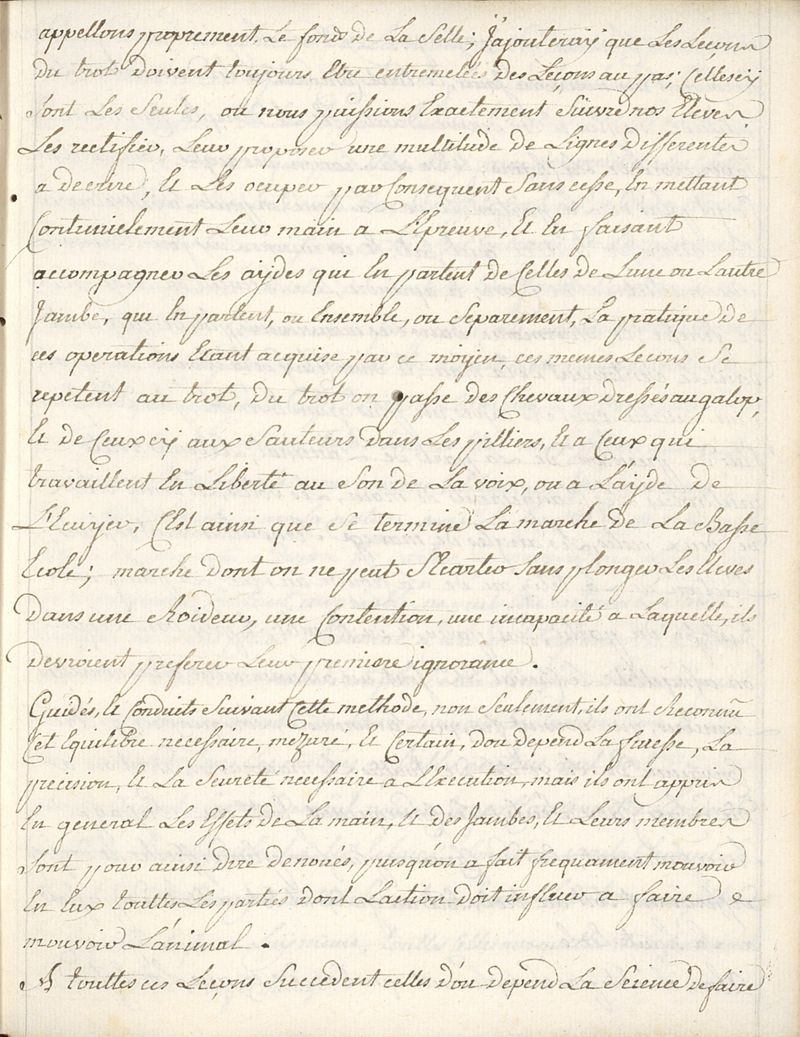 appellons proprement Le fond de La Selle; J'ajouteray que Les Leçons
du trot doivent toujours Etre entremelées des Leçons au pas; Celles cy
sont Les Seules, ou nous puissions Exactement Suivre nos Eleves
Les rectifier, Leur proposer une multitude de Lignes differentes
a decrire, Et Les ocuper par Consequent Sans cesse, En mettant
Continüelement Leur main a L'Epreuve, Et En faisant
accompagner Les aydes qui En partent de Celles de Lune ou Lautre
Jambe, qui En partent, ou Ensemble, ou Separement, La pratique de
ces operations Etant acquise par ce moyen, ces memes Lecons Se
repetent au trot, du trot on passe des Chevaux dressés au galop,
Et de Ceux cy aux Sauteurs dans Les pilliers, Et a Ceux qui
travaillent En Liberté au Son de La voix, ou a L'ayde de
L'Ecuyer, C'Est ainsi que Se termine La marche de La Basse
Ecole; marche dont on ne peut S'Ecarter Sans plonger Les Eleves
Dans une Roideur, une Contention, une incapacité a Laquelle, ils
devroient preferer Leur premiere ignorance.
Guidés, Et Conduits Suivant Cette methode, non Seulement, ils ont Reconnu
Cet Equilibre necessaire, mezuré, Et Certain, dou depend La finesse, La
precision, Et La Seureté necessaire a L'Execution, mais ils ont appris
En general Les Effets de La main, Et des Jambes, Et Leurs membres
Sont pour ainsi dire denoués, puisqu'on a fait frequament mouvoir
En Eux touttes Les parties dont Laction doit influer a faire
mouvoir L'animal.
A touttes ces Leçons Succedent celles d'ou depend La Science de faire